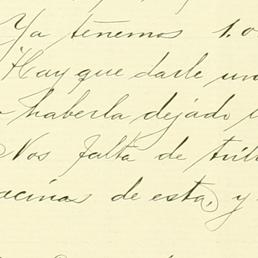 Ya tenemos 1.0
Hay que darle un
haberla dejado
Nos falta de
de esta, y